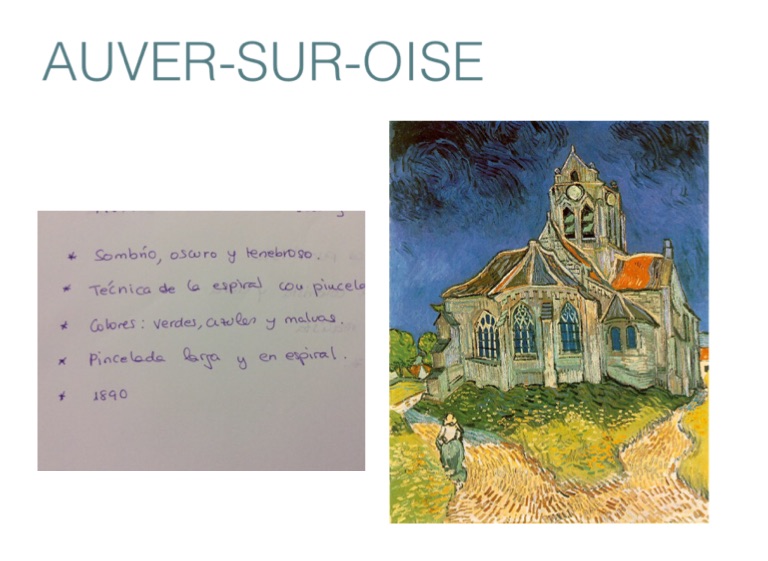 AUVER-SUR-OISE
* Sombrío, oscuro y tenebroso.
* Técnica de la espiral con pincela
* Colores: verdes, azules y malvas.
* Pincelada larga y en espiral.
* 1890